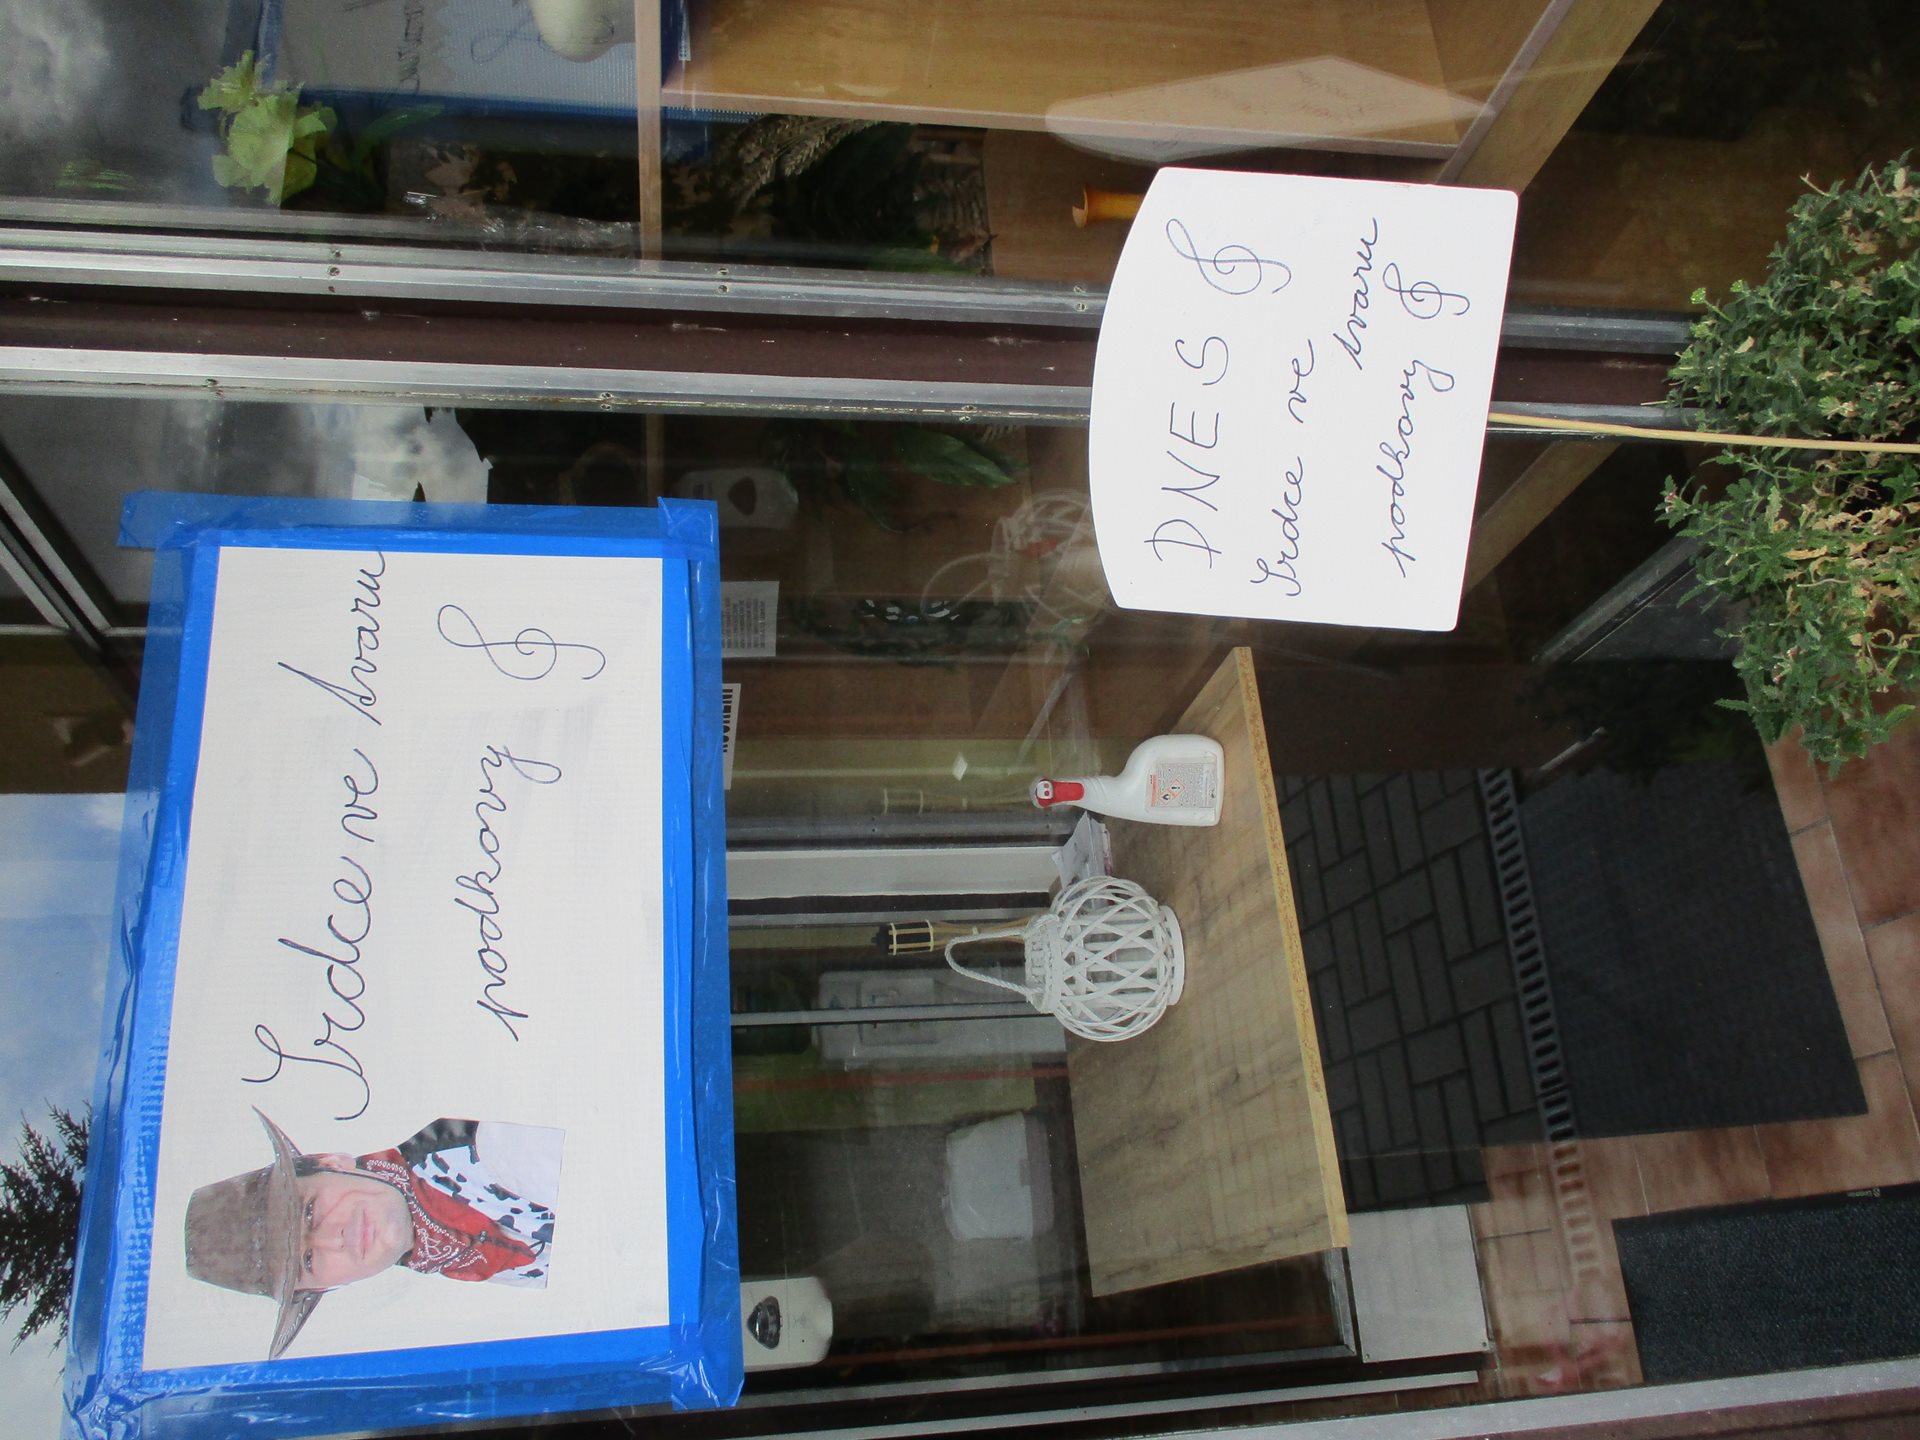 Srdce ve tvaru
podkovy
DNES
Srdce ve
tvaru
podkovy